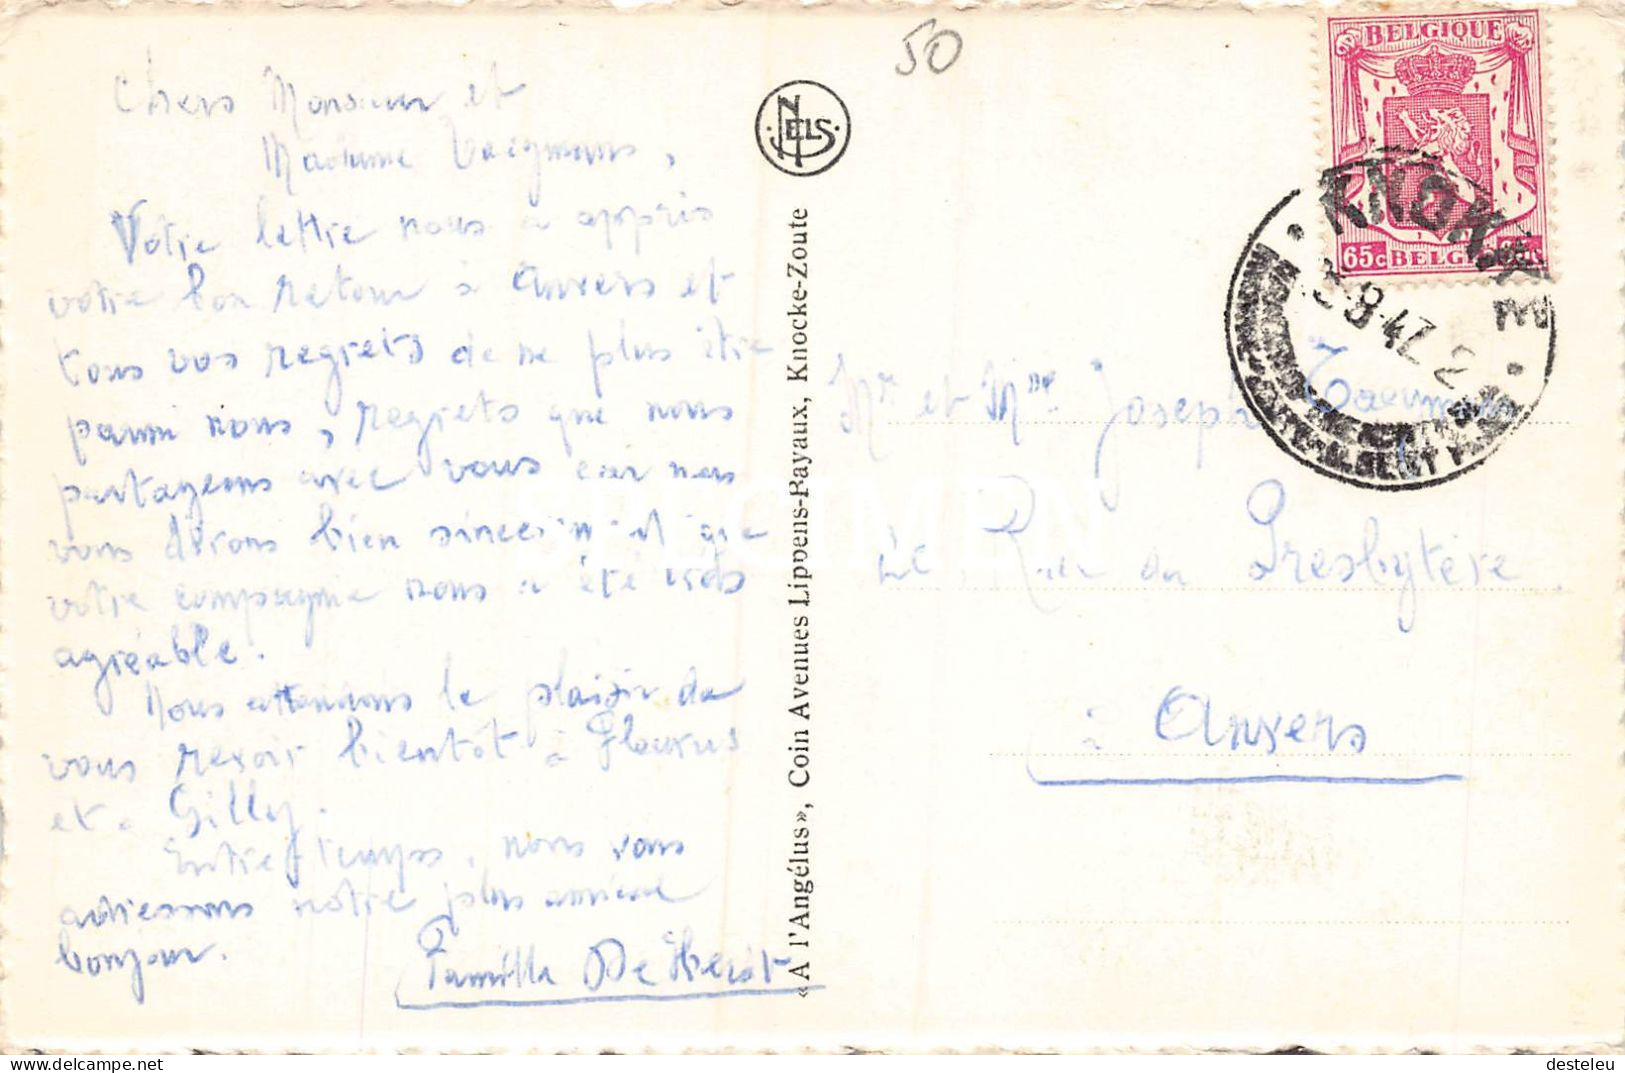 50
Chers Monsieur et
Madame
Votre lettre nous a appris
votre bon retour à Anvers et
tous vos regrets de ne plus être
parmi nous, regrets que nous
partageons avec vous car nous
vous dirons bien sincèrement que
votre compagnie nous a été très
agréable.
Nous attendons le plaisir de
vous revoir bientôt à Fleurus
et à Gilly.
Entretemps, nous vous
adressons notre plus amical
bonjour.
Famille De
NELS
« A l'Angélus », Coin Avenues Lippens-Rayaux, Knocke-Zoute
BELGIQUE
65c BELGIE 65c
KNOKKE
8-47
Mr et Mme Joseph
Rue du Presbytère
à Anvers
SPECIMEN
www.delcampe.net
desteleu